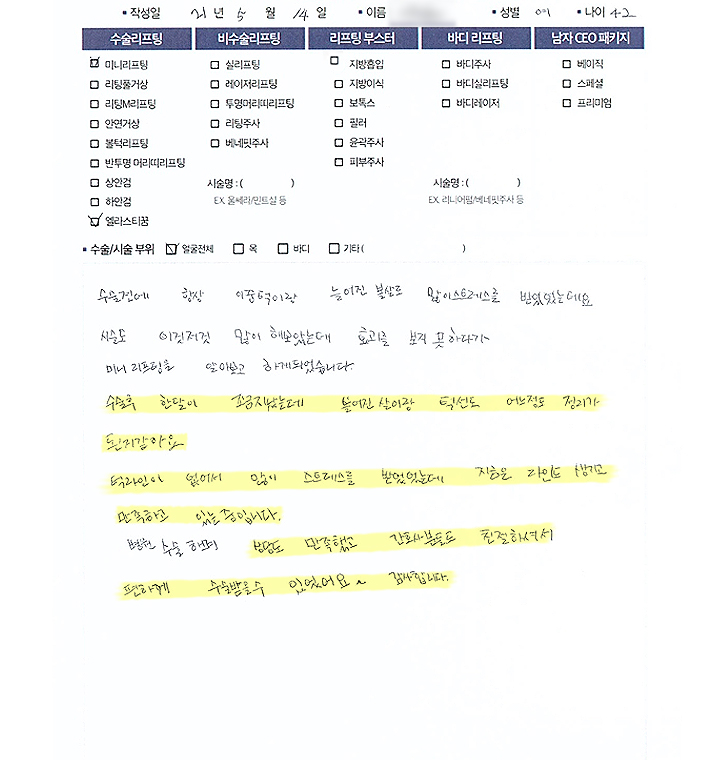 ▪ 작성일 21 년 5 월 14 일 ▪ 이름 ▪ 성별 여 ▪ 나이 42
수술리프팅 비수술리프팅 리프팅 부스터 바디 리프팅 남자 CEO 패키지
미니리프팅 실리프팅 지방흡입 바디주사 베이직
리팅풀거상 레이저리프팅 지방이식 바디실리프팅 스페셜
리팅M리프팅 투명머리띠리프팅 보톡스 바디레이저 프리미엄
안면거상 리팅주사 필러
볼턱리프팅 베네핏주사 윤곽주사
반투명 머리띠리프팅 피부주사
상안검 시술명 : ( ) 시술명 : ( )
하안검 EX. 울쎄라/민트실 등 EX. 리니어펌/베네핏주사 등
엘라스티꿈
▪ 수술/시술 부위 얼굴전체 목 바디 기타 ( )
수술전에 항상 이중턱이랑 늘어진 볼살로 많이스트레스를 받았었는데요
시술도 이것저것 많이 해보았는데 효과를 보지 못하다가
미니 리프팅을 알아보고 하게되었습니다.
수술후 한달이 조금지났는데 늘어진 살이랑 턱선도 어느정도 정리가
된거같아요
턱라인이 없어서 많이 스트레스를 받았었는데 지금은 라인도 생기고
만족하고 있는중입니다.
병원 수술 하며 상담도 만족했고 간호사분들도 친절하셔서
편하게 수술받을수 있었어요~ 감사합니다.